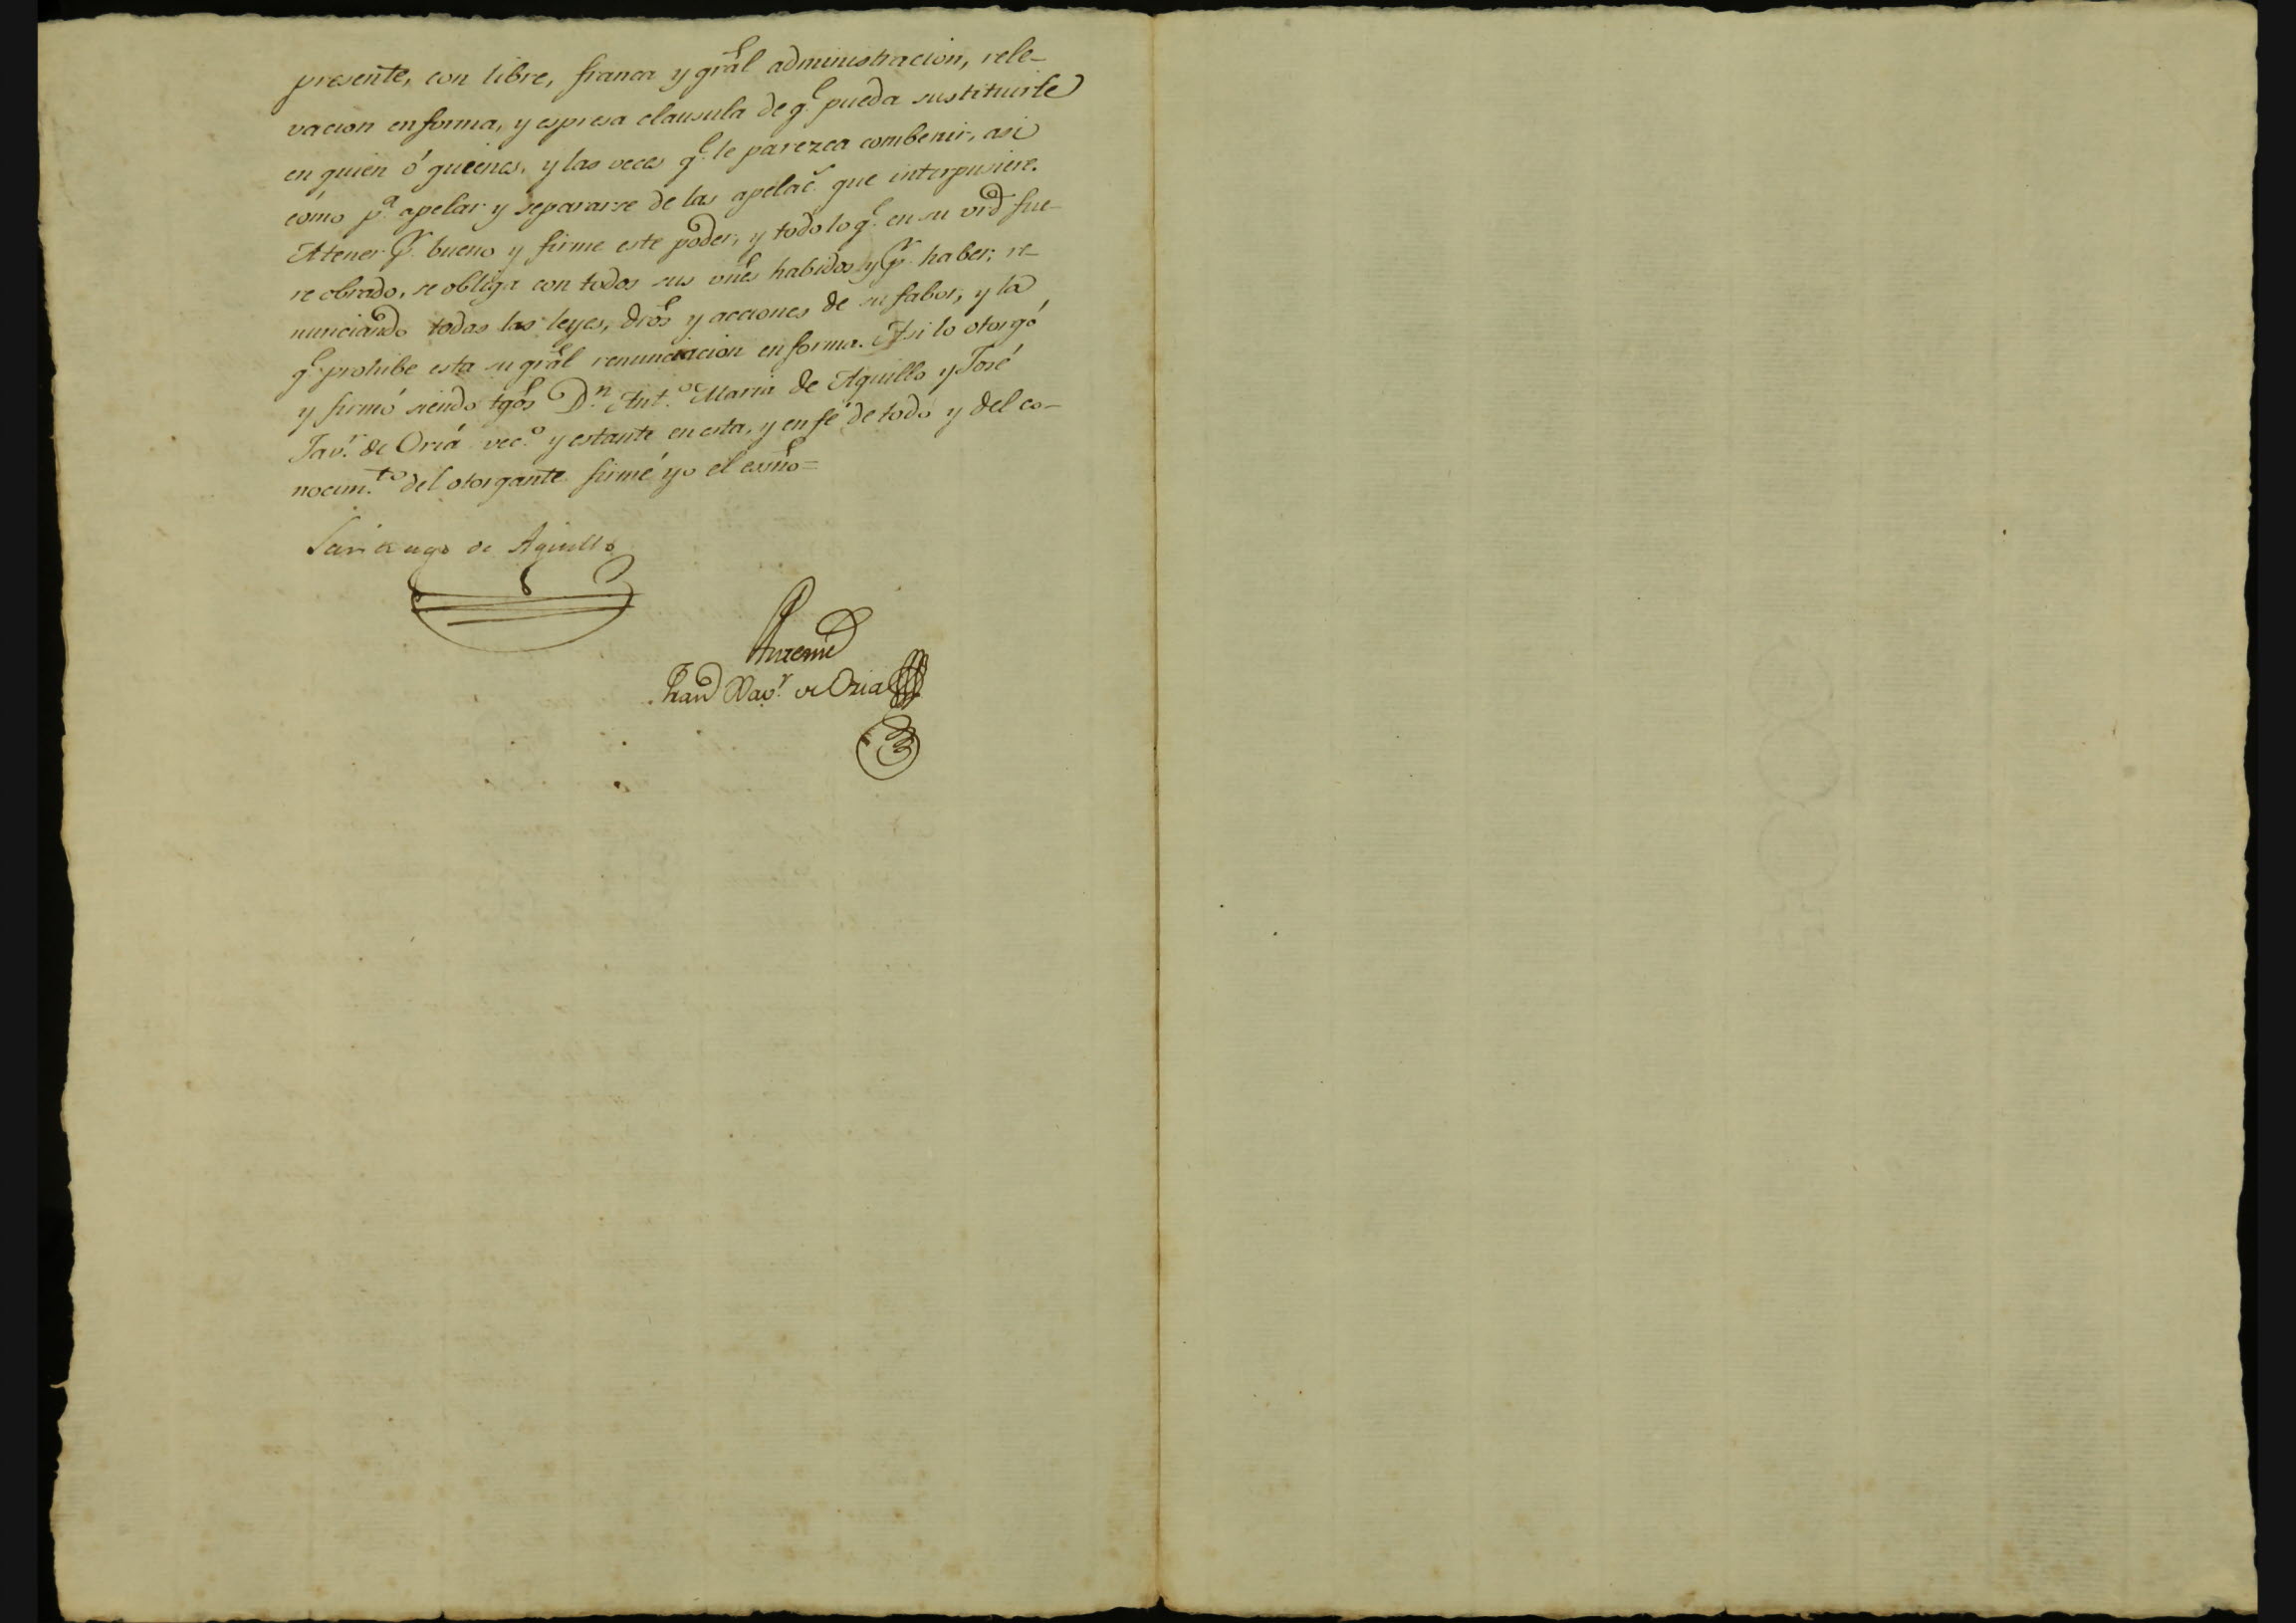 presente, con libre, franca y gral administracion, rele-
vacion en forma, y espresa clausula de q.e pueda sustituirle
en quien ó queines, y las veces q.e le parezca combenir, asi
cómo p.a apelar y separarse de las apelac.s que interpusiere.
A tener p.r bueno y firme este poder, y todo lo q.e en su vrd fue-
re obrado, se obliga con todos sus vnes habidos y p.r haber; re-
nunciando todas las leyes, dros y acciones de su fabor, y la
q.e prohibe esta su gral renunciacion en forma. Asi lo otorgó
y firmó siendo tgos D.n Ant.o Maria de Aguillo y José
Jav.r de Oria vec.o y estante en esta, y en fé de todo y del co-
nocim.to del otorgante firmé yo el esno=
Santiago de Aguillo
Antemi
Xav.r de Oria